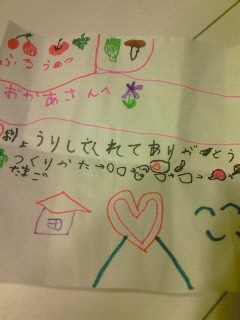 ふるうつ
おかあさんへ
りょうりしてくれてありがとう
つくりかた→
たまご